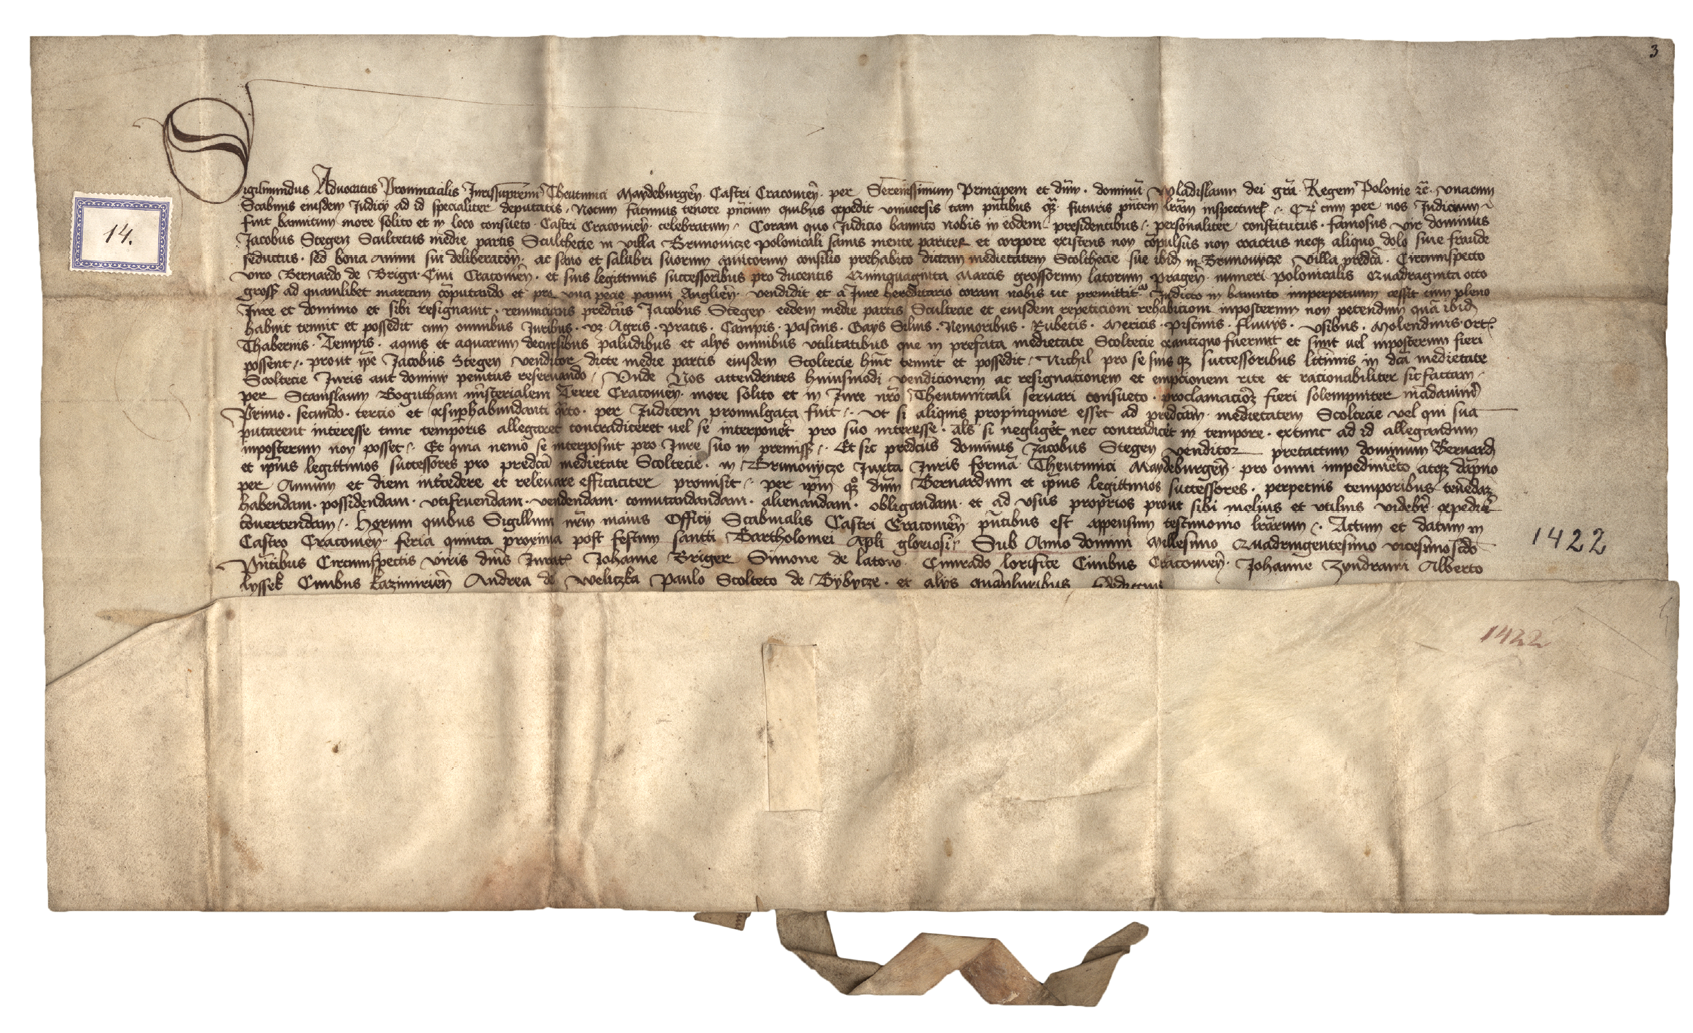 3
14.
Sigismundus Advocatus Provincialis Jurissupremi Theutunici Maydeburgeñ Castri Cracovieñ per Serenissimum Principem et dñm dominũ Wladislaum dei grã Regem Polonie zc̃ unacum
Scabinis eiusdem Judicij ad id specialiter deputatis Notum facimus tenore pñcium quibus expedit universis tam pñtibus qz̃ futuris pñtem lrãm inspecturis Et cum per nos Judicium
fuit bannitum more solito et in loco consueto Castri Cracovieñ celebratum Coram quo Judicio bannito nobis in eodem presidentibus personaliter constitutus famosus vir dominus
Jacobus Stegen Scultetus medie partis Scultecie in villa Brunowicze polonicali sanus mente pariter et corpore existens non cõpulsus non coactus neqz aliquo dolo sive fraude
seductus sed bona animi sui deliberacõe ac sano et salubri suorum amicorum consilio prehabito dictam medietatem Scoltecie sue ibidẽ in Brunowycze villa prẽdcã Circumspecto
viro Bernardo de Briga Civi Cracovieñ et suis legittimis successoribus pro ducentis Quinquaginta Marcis grossorum latorum prageñ numeri polonicalis Quadraginta octo
gross̃ ad quamlibet marcam cõputando et pro una pecie panni Anglieñ vendidit et a Jure hereditario coram nobis ut premittitur Judicio in bannito imperpetuum cessit cum pleno
Jure et dominio et sibi resignavit renuncians predcũs Jacobus Stegen eedem medie partis Scultecie et eiusdem repeticioni rehabicioni inposterum non petendum quã ibidẽ
habuit tenuit et possedit cum omnibus Juribus vz Agris pratis Campis pascuis Gays Silvis Nemoribus Rubetis Mericis piscinis fluvys usibus Molendinis ort
Thabernis Tempis aquis et aquarum decursibus paludibus et alys omnibus utilitatibus que in prefata medietate Scoltecie exantiquo fuerunt et sunt vel inposterum fieri
possent prout ipẽ Jacobus Stegen venditor dicte medie partis eiusdem Scoltecie huit tenuit et possedit Nichil pro se suis qz successoribus litimis in dcã medietate
Scoltecie Juris aut dominy penitus reservando Unde Nos attendentes huiusmodi vendicionem ac resignacionem et empcionem rite et racionabiliter sic factam
per Stanislaum Bogutham ministerialem Terre Cracovieñ more solito et in Jure nrõ Theutunicali servari consueto proclamacioẽz fieri solempniter mãdavimꝰ
Primo secundo tercio et exsuphabundanti qrto per Judicem promulgata fuit ut si aliquis propinquior esset ad predcãm medietatem Scoltecie vel qui sua
putarent interesse tunc temporis allegaret contradiceret vel se interponet̃ pro suo interesse als si negliget̃ nec contradicet̃ in tempore extunc ad id allegandum
inposterum non posset Et quia nemo se interposuit pro Jure suo in premiss̃ Et sic predcũs dominus Jacobus Stegen venditor pretactum dominum Bernardũ
et ipĩus legittimos successores pro predcã medietate Scoltecie in Brunowycze Juxta Juris formã Theutunici Maydeburgeñ pro omni impedimẽto atqz dãpno
per Annum et diem intcedere et relevare efficaciter promisit per ipm̃ qz̃ dñm Bernardum et ipĩus legittimos successores perpetuis temporibus tenẽdaz
habendam possidendam utifruendam vendendam comutandandam alienandam obligandam et ad usus proprios prout sibi melius et utilius videbitr̃ expedirẽ
covertendam Horum quibus Sigillum nrm̃ maius Officij Scabinalis Castri Cracovieñ pñtibus est appensum testimonio lrãrum Actum et datum in
Castro Cracovieñ feria quinta proxima post festum sancti Bartholomei Apli gloriosi Sub Anno domini Millesimo Quadringentesimo vicesimoscdo
Pñtibus Circumspectis viris dnĩs Jurat̃ Johanne Briger Simone de latow Cunrado lorifice Civibus Cracovieñ Johanne Zyndrami Alberto
lyssek Civibus kazimirieñ Andrea de Weliczka Paulo Scolteto de Bybycze et alys
1422
1422